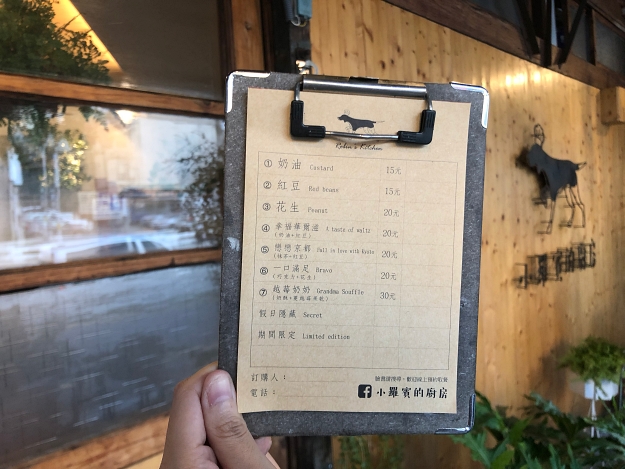 Robin's Kitchen
① 奶油 Custard 15元
② 紅豆 Red beans 15元
③ 花生 Peanut 20元
④ 幸福華爾滋 A taste of waltz 20元
(奶油+紅豆)
⑤ 戀戀京都 Fall in love with Kyoto 20元
(抹茶+紅豆)
⑥ 一口滿足 Bravo 20元
(巧克力+花生)
⑦ 蔓莓奶奶 Grandma Souffle 30元
假日隱藏 Secret
期間限定 Limited edition
訂購人：
電話：
小羅賓的廚房
小羅賓的廚房